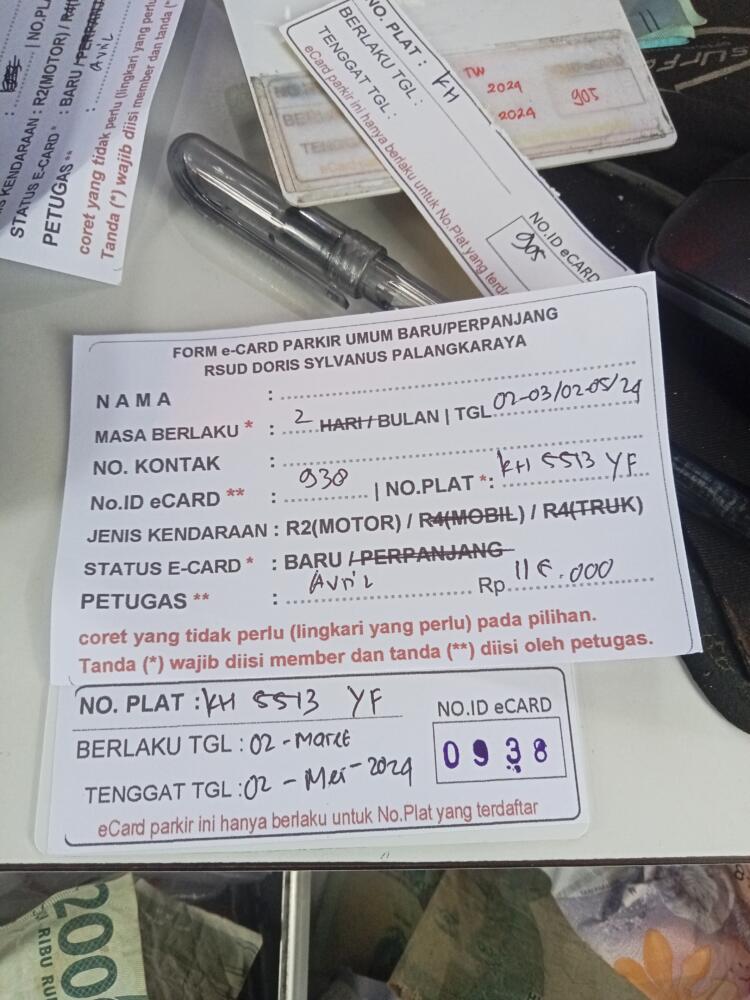 NO.PL
KENDARAAN : R2(MOTOR) /
STATUS E-CARD * : BARU /
PETUGAS ** : Avril
coret yang tidak perlu (lingkari yang perlu
Tanda (*) wajib diisi member dan tanda (*
NO. PLAT : KH
BERLAKU TGL :
TENGGAT TGL:
eCard parkir ini hanya berlaku untuk No.Plat yang terda
NO.ID eCARD
905
TW
2024
2024
905
FORM e-CARD PARKIR UMUM BARU/PERPANJANG
RSUD DORIS SYLVANUS PALANGKARAYA
NAMA :
MASA BERLAKU * : 2 HARI / BULAN | TGL 02-03/02-05/24
NO. KONTAK :
No.ID eCARD ** : 938 | NO.PLAT *: KH 5513 YF
JENIS KENDARAAN : R2(MOTOR) / R4(MOBIL) / R4(TRUK)
STATUS E-CARD * : BARU / PERPANJANG
PETUGAS ** : Avril Rp .000
coret yang tidak perlu (lingkari yang perlu) pada pilihan.
Tanda (*) wajib diisi member dan tanda (**) diisi oleh petugas.
NO. PLAT : KH 5513 YF
NO.ID eCARD
BERLAKU TGL : 02 - Maret
0938
TENGGAT TGL : 02 - Mei - 2024
eCard parkir ini hanya berlaku untuk No.Plat yang terdaftar
200
RIBU RU